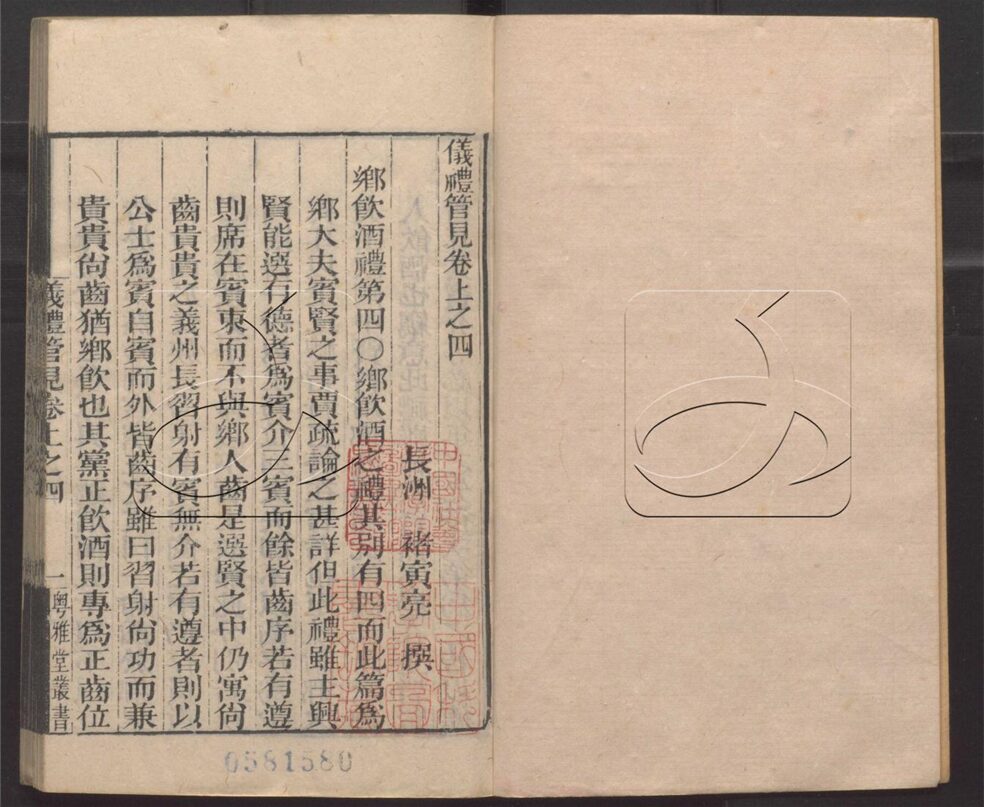 儀禮管見卷上之四
長洲 褚寅亮 撰
鄉飲酒禮第四○鄉飲酒之禮其別有四而此篇爲
鄉大夫賓賢之事賈疏論之甚詳但此禮雖主興
賢能選有德者爲賓介三賓而餘皆齒序若有遵
則席在賓東而不與鄉人齒是選賢之中仍寓尙
齒貴貴之義州長習射有賓無介若有遵者則以
公士爲賓自賓而外皆齒序雖曰習射尙功而兼
貴貴尙齒猶鄉飲也其黨正飲酒則專爲正齒位
儀禮管見卷上之四 一 粵雅堂叢書
0581580